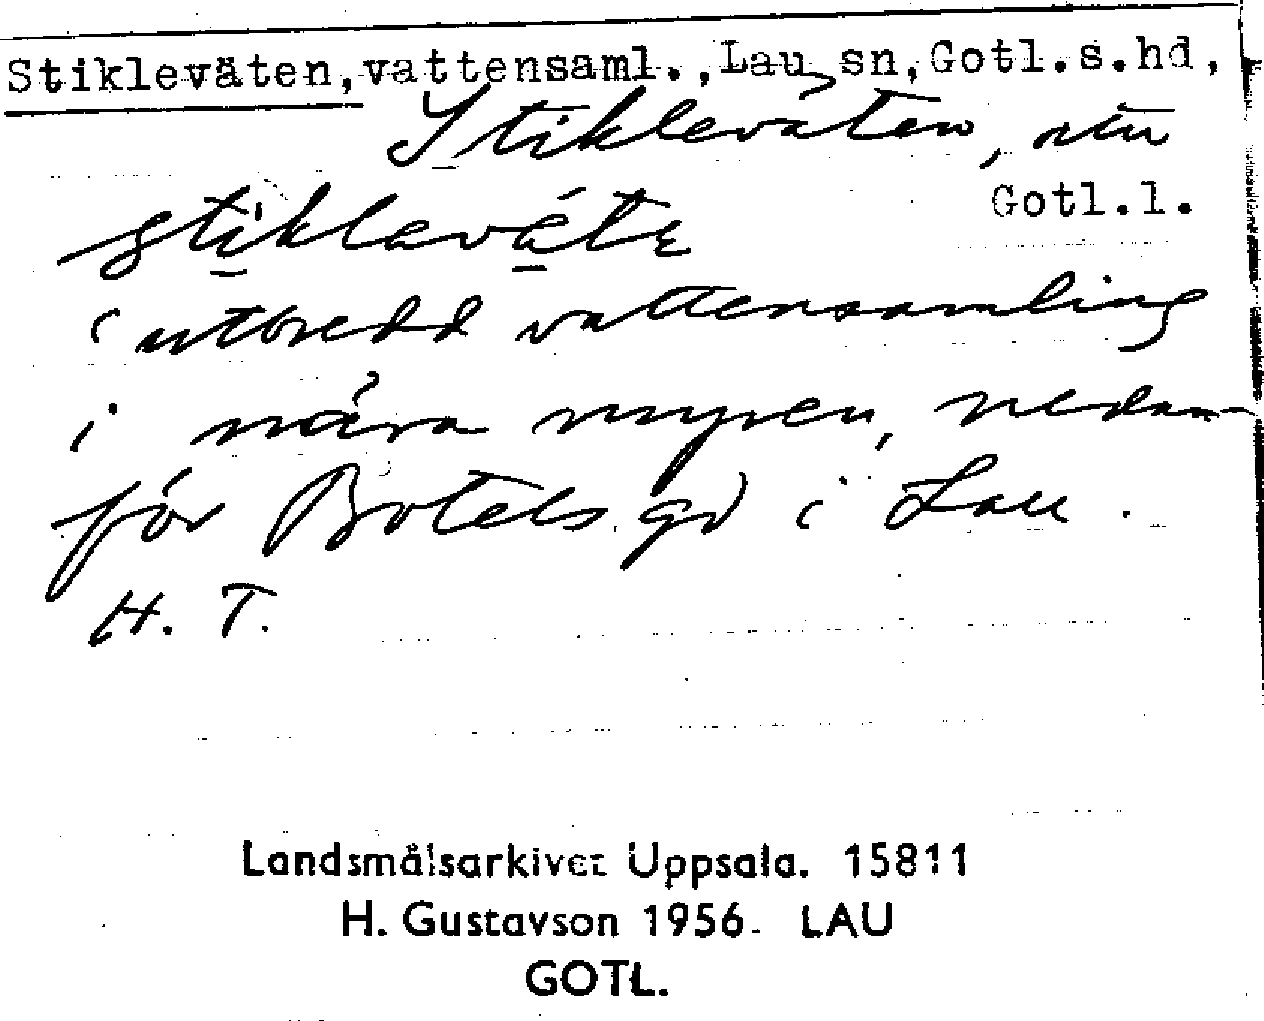 Stikleväten, vattensaml., Lau sn, Gotl.s.hd,
Stikleväten,
Gotl.l.
stiklavätε
utbredd vattensamling
i nära myren, nedan-
för Botels gd i Lau.
H. T.
Landsmålsarkivet Uppsala. 15811
H. Gustavson 1956. LAU
GOTL.